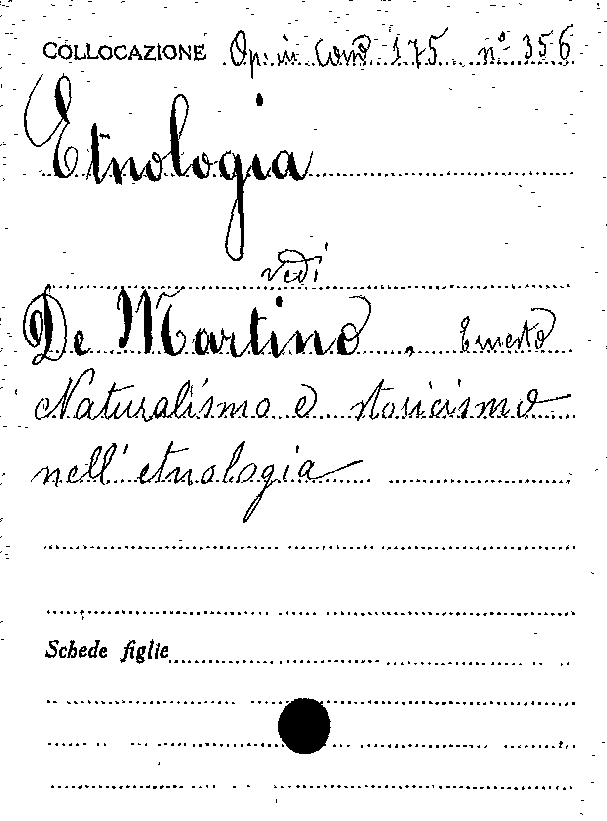 COLLOCAZIONE Op. in Cons 175 nº 356
Etnologia
vedi
De Martino, Ernesto
Naturalismo e storicismo
nell'etnologia
Schede figlie